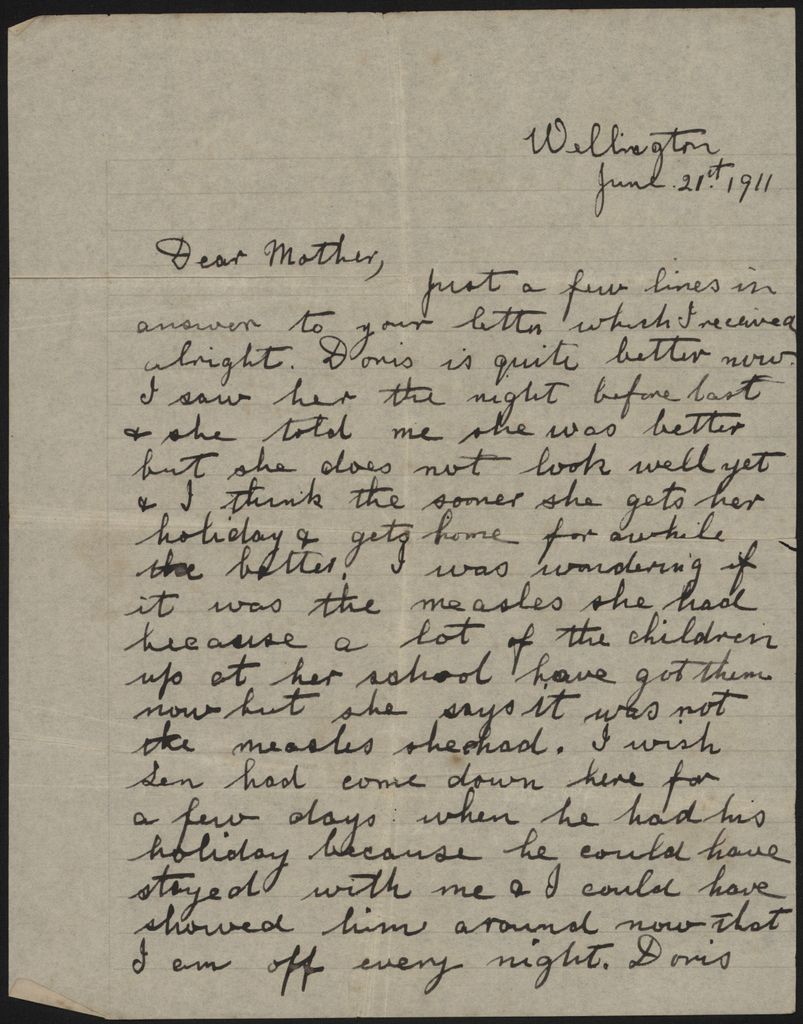 Wellington
June. 21st. 1911
Dear Mother,
Just a few lines in
answer to your letter which I received
alright. Doris is quite better now.
I saw her the night before last
& she told me she was better
but she does not look well yet
& I think the sooner she gets her
holiday & gets home for awhile
the better. I was wondering if
it was the measles she had
because a lot of the children
up at her school have got them
now but she says it was not
the measles she had. I wish
Len had come down here for
a few days when he had his
holiday because he could have
stayed with me & I could have
showed him around now that
I am off every night. Doris